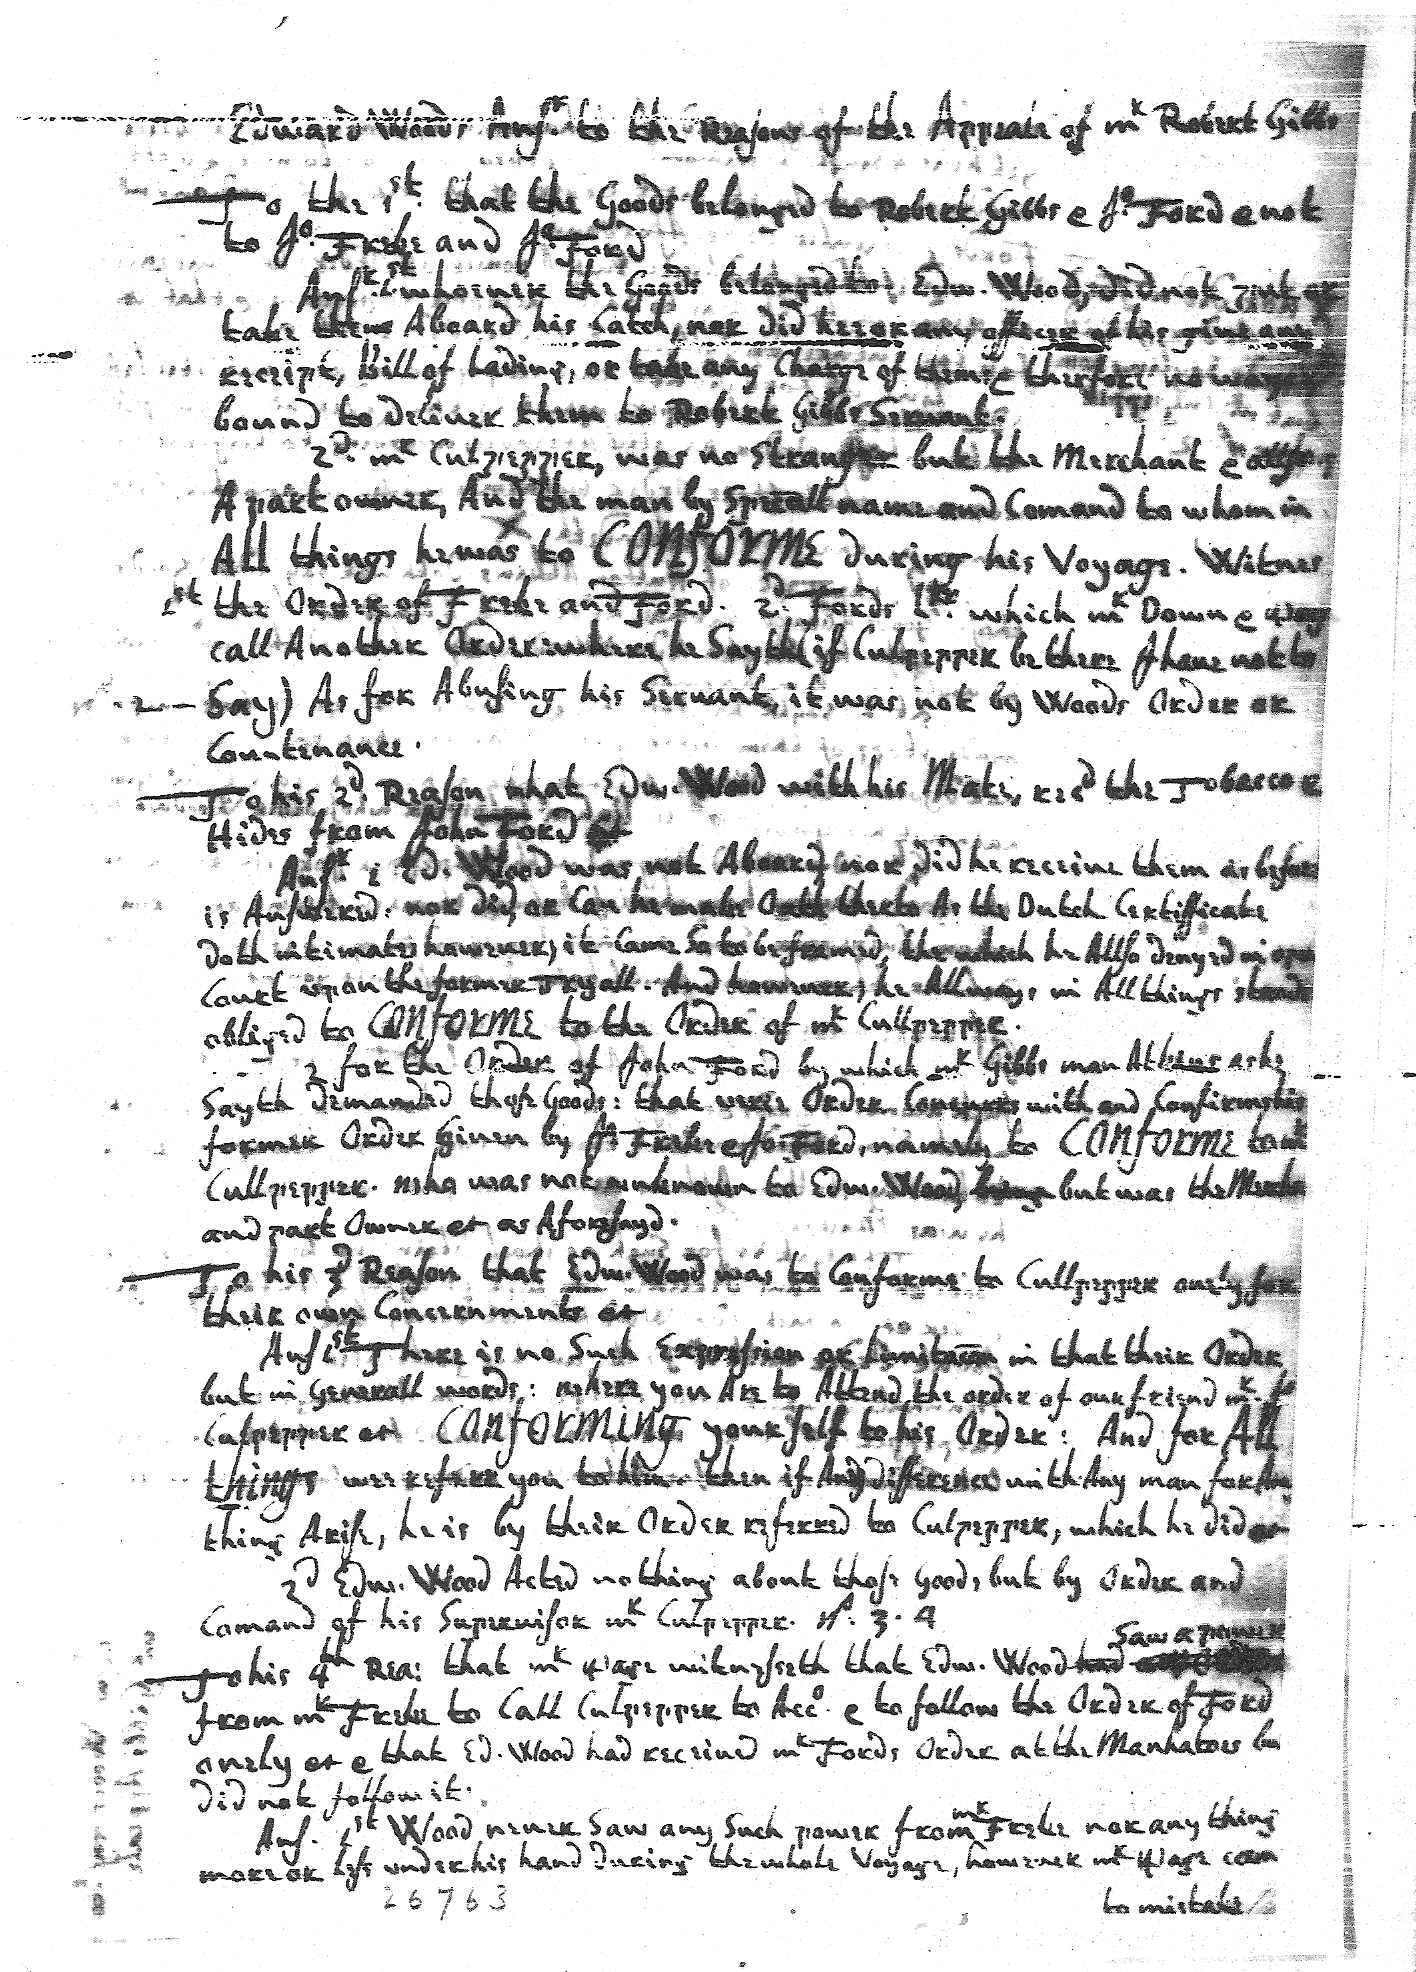 Edward Woods Ansr to the Reasons of the Appeale of mr Robert Gibbs
To the 1st that the Goods belonged to Robert Gibbs & Jo. Ford & not
to Jo. Freke and Jo. Ford
Ansr 1st whoever the Goods belonged to Edw. Wood, did not
take them Aboard his Catch, nor did hee or any officer of his give any
receipt, Bill of Lading, or take any Charge of them & therfore no wayes
bound to deliver them to Robert Gibbs Servant.
2d. mr Culpepper, was no Stranger but the Merchant & allso
A part owner, And the man by Speciall name and Comand to whom in
All things he was to CONFORME during his Voyage. Witnes
1st the Order of Freke and Ford. 2d. Fords Lre. which mr Down & Page
call Another Order where he Sayth (if Culpepper be there I have not to
Say) As for Abusing his Servant, it was not by Woods Order or
Countenance.
To his 2d. Reason that Edw. Wood with his Mate, recd the Tobacco &
Hides from John Ford et
Ansr. 1 Ed. Wood was not Aboard nor did he receive them as before
is Answered. nor did, or Can he make Oath therto As the Dutch Certifficate
doth intimate; however, it Came So to be framed, the which he Allso denyed in open
Court upon the former Tryall. And however, he Allways in All things stands
obliged to CONFORME to the Order of mr Cullpepper.
2 for the Order of John Ford by which mr Gibbs man Atkins as he
Sayth demanded those Goods: that verie Order Concurrs with and Confirms his
former Order Given by Jo Freke & Jo: Ford, namely to CONFORME to mr
Cullpepper. who was not unknown to Edw. Wood, but was the Mercha
and part Owner et as Aforesayd.
To his 3d Reason that Edw. Wood was to Conforme to Cullpepper onely for
their own Concernments et
Ans 1st There is no Such Expression or Limitacon in that their Order
but in Generall words: where you Are to Attend the order of our friend mr Jo
Culpepper et CONFORMING your self to his Order: And for All
things wee referr you to him. then if Any difference with Any man for Any
thing Arise, he is by their Order referred to Culpepper, which he did et
2d Edw. Wood Acted nothing about those Goods but by Order and
Comand of his Supervisor mr Culpepper. No. 3. 4
Saw a power
To his 4th Rea: that mr Page witnesseth that Edw. Wood had
from mr Freke to Call Culpepper to Acco. & to follow the Order of Ford
onely et & that Ed. Wood had received mr Fords Order at the Manhatoes bu
did not follow it.
Ans. 1st Wood never Saw any Such power from mr Freke nor any thing
more or less under his hand during the whole Voyage, however mr Page com
26763
to mistake